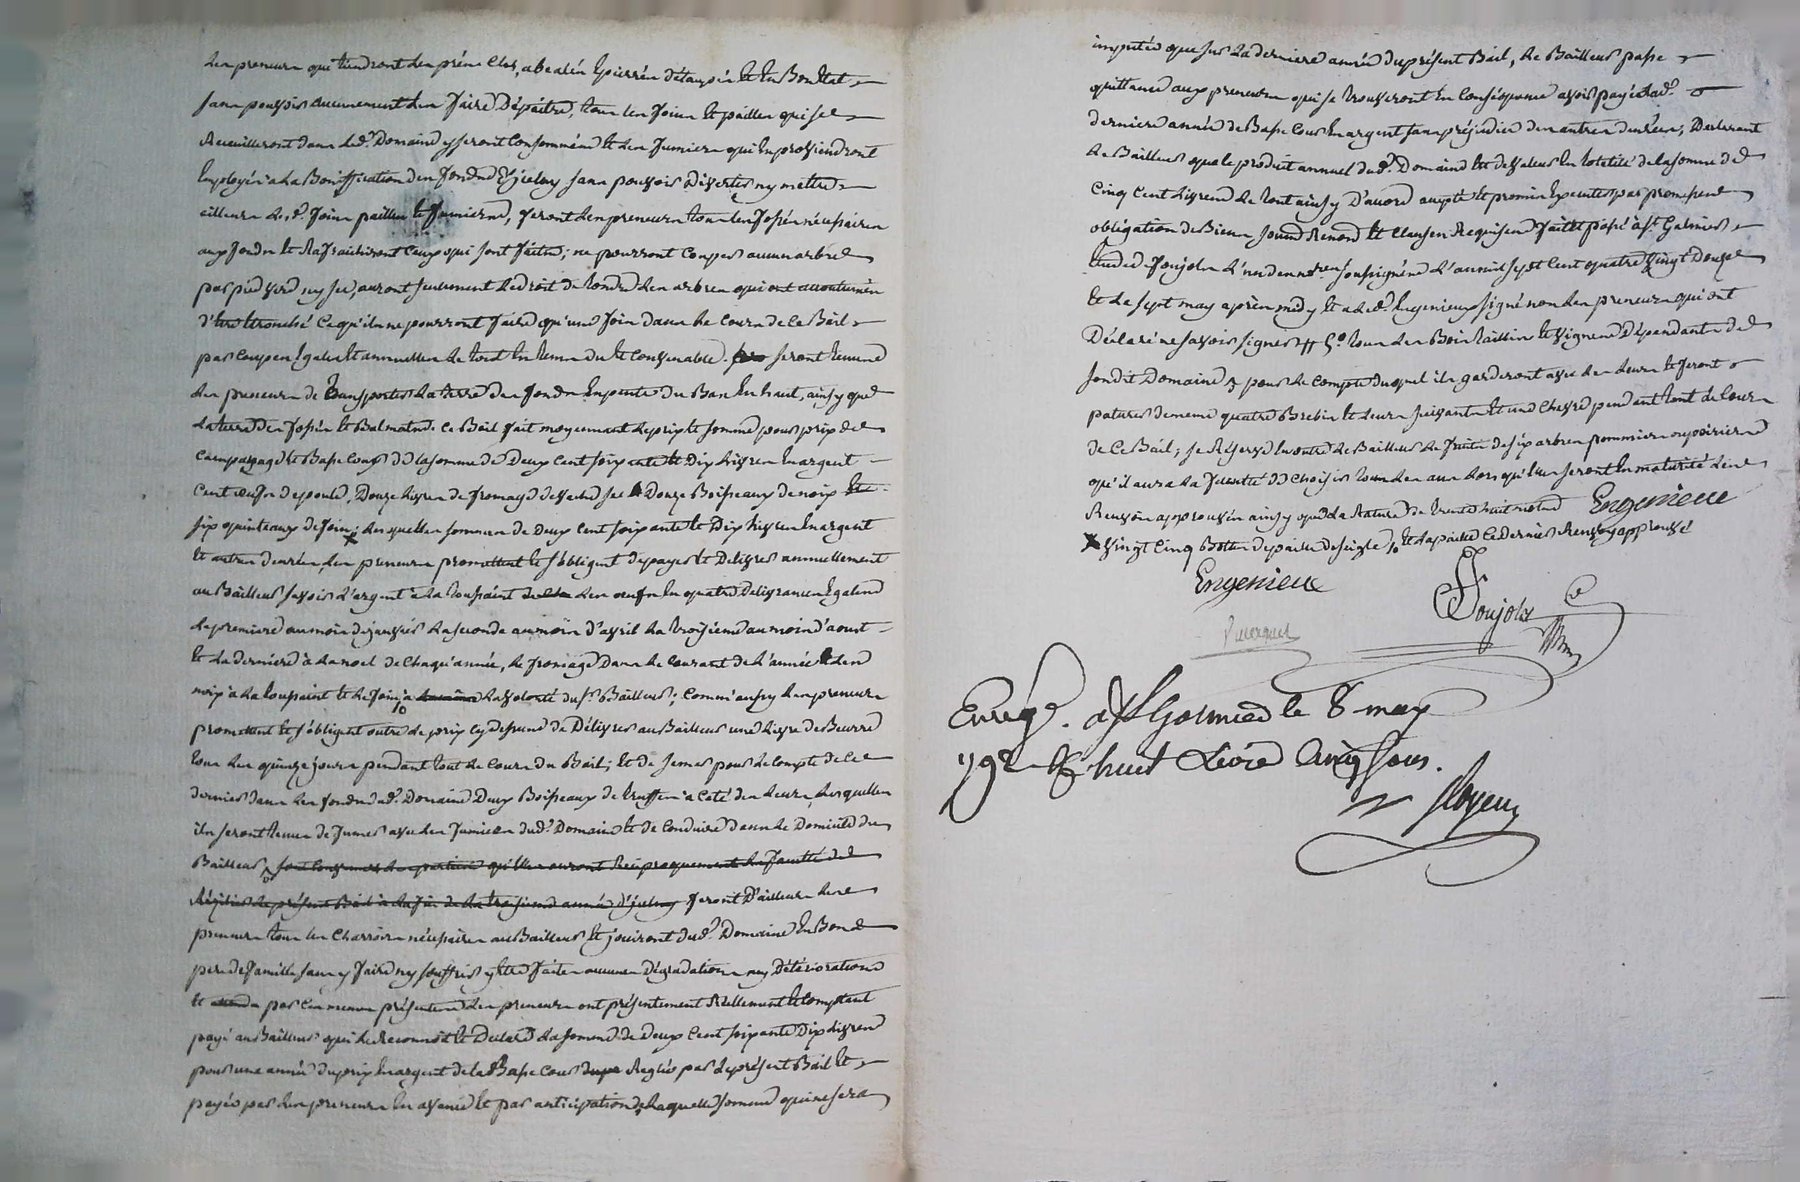 les preneurs qui tiendront les prés clos, abealés épierrés détaupés et en bon état
sans pouvoir aucunement les faire dépaitre, tous les foins et pailles qui se
recueilleront dans led. Domaine y seront consommés et les fumiers qui en proviendront
employés a la Bonification des fonds d'jceluy sans pouvoir divertir ny mettre
ailleurs lesd. foins pailles et fumiers, feront les preneurs tous les fossés nécessaires
aux fonds et rafraichiront ceux qui sont faits; ne pourront couper aucun arbre
par pied verd ny sec, auront seulement le droit de tondre les arbres qui ont accoutumés
d'être étronché ce qu'ils ne pourront faire qu'une fois dans le cours de ce Bail
par coupes égales et annuelles le tout en tems du et convenable. seront tenus
les preneurs de transporter la terre des fonds en pente du Bas en haut, ainsy que
la terre des fossés et Balmats. ce Bail fait moyennant le prix et somme pour prix de
et Basse Cour de la somme de Deux Cent soixante et Dix Livres en argent
cent œufs de poule, Douze Livres de fromage de vache sec et Douze Boisseaux de noix
six quinteaux de foin; lesquelles sommes de Deux Cent soixante et Dix Livres en argent
et autres denrées, les preneurs promettent et s'obligent de payer et Delivrer annuellement
au Bailleur savoir l'argent à la toussaint les œufs en quatre Delivrances égales
la premiere au mois de janvier la seconde au mois d'avril la troisieme au mois d'aoust
et la derniere à la noel de chaque année, le fromage dans le courant de l'année et les
noix à la toussaint et le foin à la volonté du sr. Bailleur; comm'aussy les preneurs
promettent et s'obligent outre le prix cy dessus de Délivrer au Bailleur une Livre de Beurre
tous les quinze jours pendant tout le cours du Bail; et de semer pour le compte de ce
dernier dans les fonds dud. Domaine Deux Boisseaux de truffes à coté des leurs, lesquelles
ils seront tenus de fumer avec les fumiers dud. Domaine et de conduire dans le Domicile du
Bailleur, sous conventions des parties qu'elles auront réciproquement la faculté de
Résilier le présent Bail à la fin de la troisieme année d'jceluy feront d'ailleurs les
preneurs tous les charrois nécessaires au Bailleur et jouiront dud. Domaine en Bons
pere de famille sans y faire ny souffrir y être faite aucunes dégradations ny détériorations
et par ces mêmes présentes les preneurs ont présentement réellement et comptant
payé au Bailleur qui le reconnoit et Declare la somme de Deux Cent soixante Dix Livres
pour une année du prix en argent de la Basse Cour Reglée par le présent Bail et
payée par les preneurs en avance et par anticipation, laquelle somme qui ne sera
imputée que sur la derniere année du présent Bail, le Bailleur passe
quittance aux preneurs qui se trouveront en conséquence avoir payé lad.
derniere année de Basse Cour en argent sans préjudice des autres denrées; Declarant
le Bailleur que le produit annuel dud. Domaine est de valeur en totalité de la somme de
Cinq Cent Livres le tout ainsy d'accord accepté et promis éxécuter par promesse
obligation de Biens soumis Renons et clauses Requises fait et passé à St Galmier
étude Foujols l'un des notres soussignés l'an mil sept cent quatre vingt Douze
et le sept may après midy et a led. Engenieux signé non les preneurs qui ont
Déclaré ne savoir signer // tous les Bois taillis et vignes Dépendants de
son dit Domaine pour le compte duquel ils garderont avec les leurs et feront
paturer de meme quatre Brebis et leurs suivants et une chevre pendant tout le cours
de ce Bail; se réserve en outre le Bailleur le fruit de six arbres pommiers ou poiriers
qu'il aura la faculté de choisir tous les ans lors qu'ils seront en maturité lesd.
Renvois approuvés ainsy que la Rature de trente huit mots Engenieux
x vingt cinq Bottes de paille de seigle et la paille ce dernier Renvoy approuvé
Engenieux
Foujols
Enregé. a St Galmier le 8 may
1792 R huit Livre cinq sous.